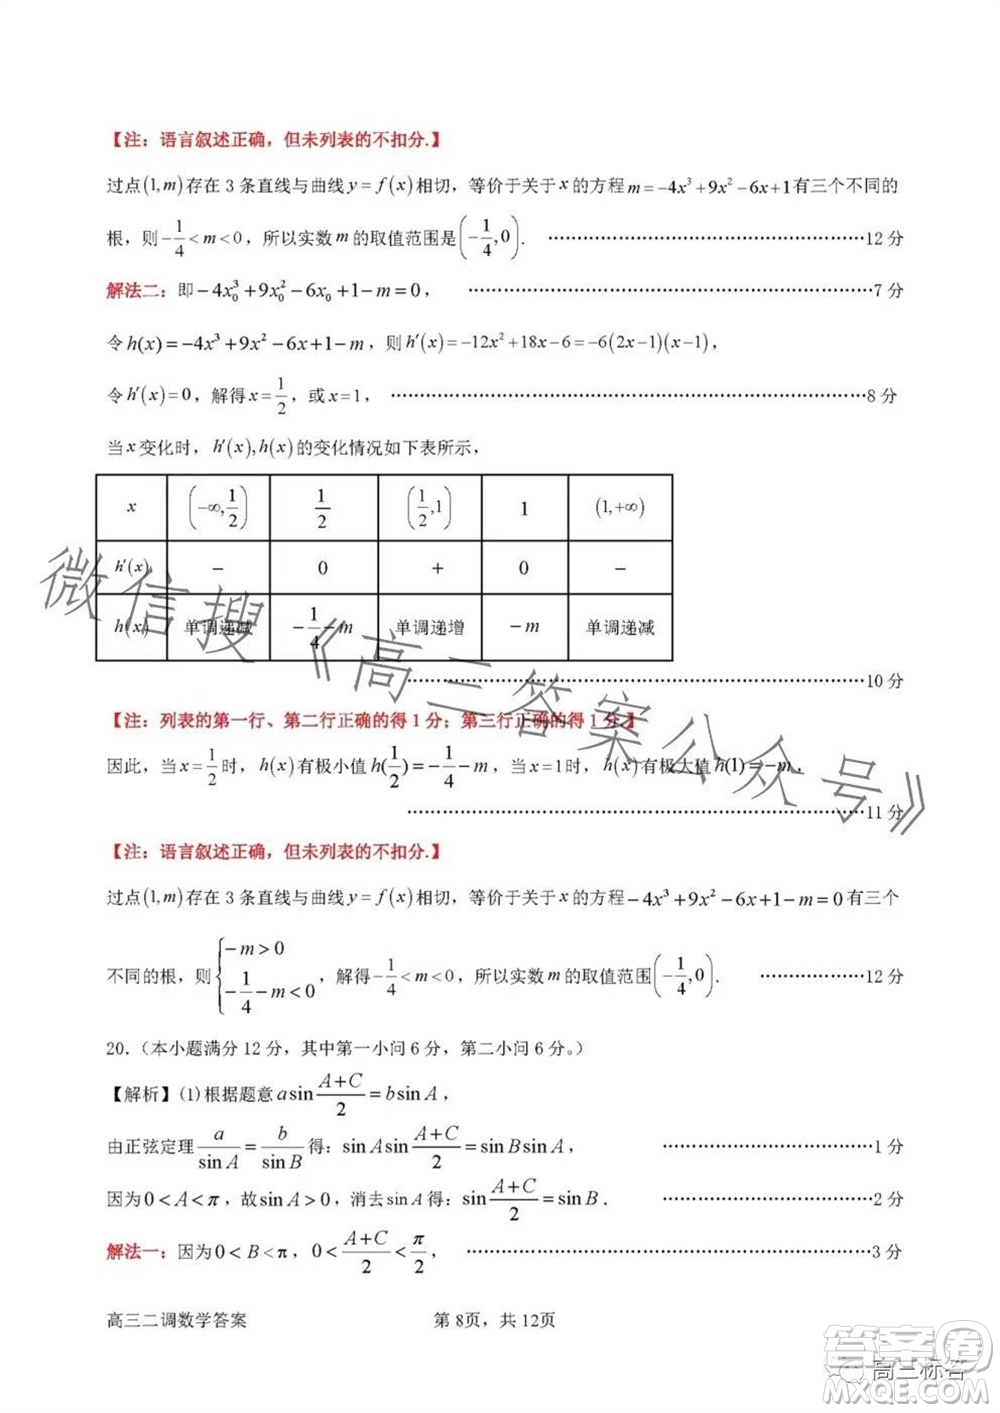 【注：语言叙述正确，但未列表的不扣分.】
过点(1,m)存在 3 条直线与曲线 y=f(x)相切，等价于关于 x 的方程 m=-4x³+9x²-6x+1有三个不同的
根，则-1/4<m<0，所以实数 m 的取值范围是(-1/4,0). ……………………12 分
解法二：即-4x₀³+9x₀²-6x₀+1-m=0， ……………………7 分
令 h(x)=-4x³+9x²-6x+1-m，则 h′(x)=-12x²+18x-6=-6(2x-1)(x-1)，
令 h′(x)=0，解得 x=1/2，或 x=1， ……………………8 分
当 x 变化时，h′(x),h(x)的变化情况如下表所示，
x (-∞,1/2) 1/2 (1/2,1) 1 (1,+∞)
h′(x) − 0 + 0 −
h(x) 单调递减 -1/4-m 单调递增 -m 单调递减
……………………10 分
【注：列表的第一行、第二行正确的得 1 分；第三行正确的得 1 分.】
因此，当 x=1/2 时，h(x)有极小值 h(1/2)=-1/4-m，当 x=1时，h(x)有极大值 h(1)=-m，
……………………11 分
【注：语言叙述正确，但未列表的不扣分.】
过点(1,m)存在 3 条直线与曲线 y=f(x)相切，等价于关于 x 的方程-4x³+9x²-6x+1-m=0有三个
不同的根，则{-m>0 -1/4-m<0，解得-1/4<m<0，所以实数 m 的取值范围(-1/4,0). ……………12 分
20.（本小题满分 12 分，其中第一小问 6 分，第二小问 6 分。）
【解析】(1)根据题意 a sin (A+C)/2=b sin A，
由正弦定理 a/sin A=b/sin B 得：sin A sin (A+C)/2=sin B sin A， ……………………1 分
因为 0<A<π，故 sin A>0，消去 sin A 得：sin (A+C)/2=sin B. ……………………2 分
解法一：因为 0<B<π，0<(A+C)/2<π/2， ……………………3 分
高三二调数学答案 第 8页，共 12页
微信搜《高三答案公众号》
高三标答
答案圈
MXQE.COM